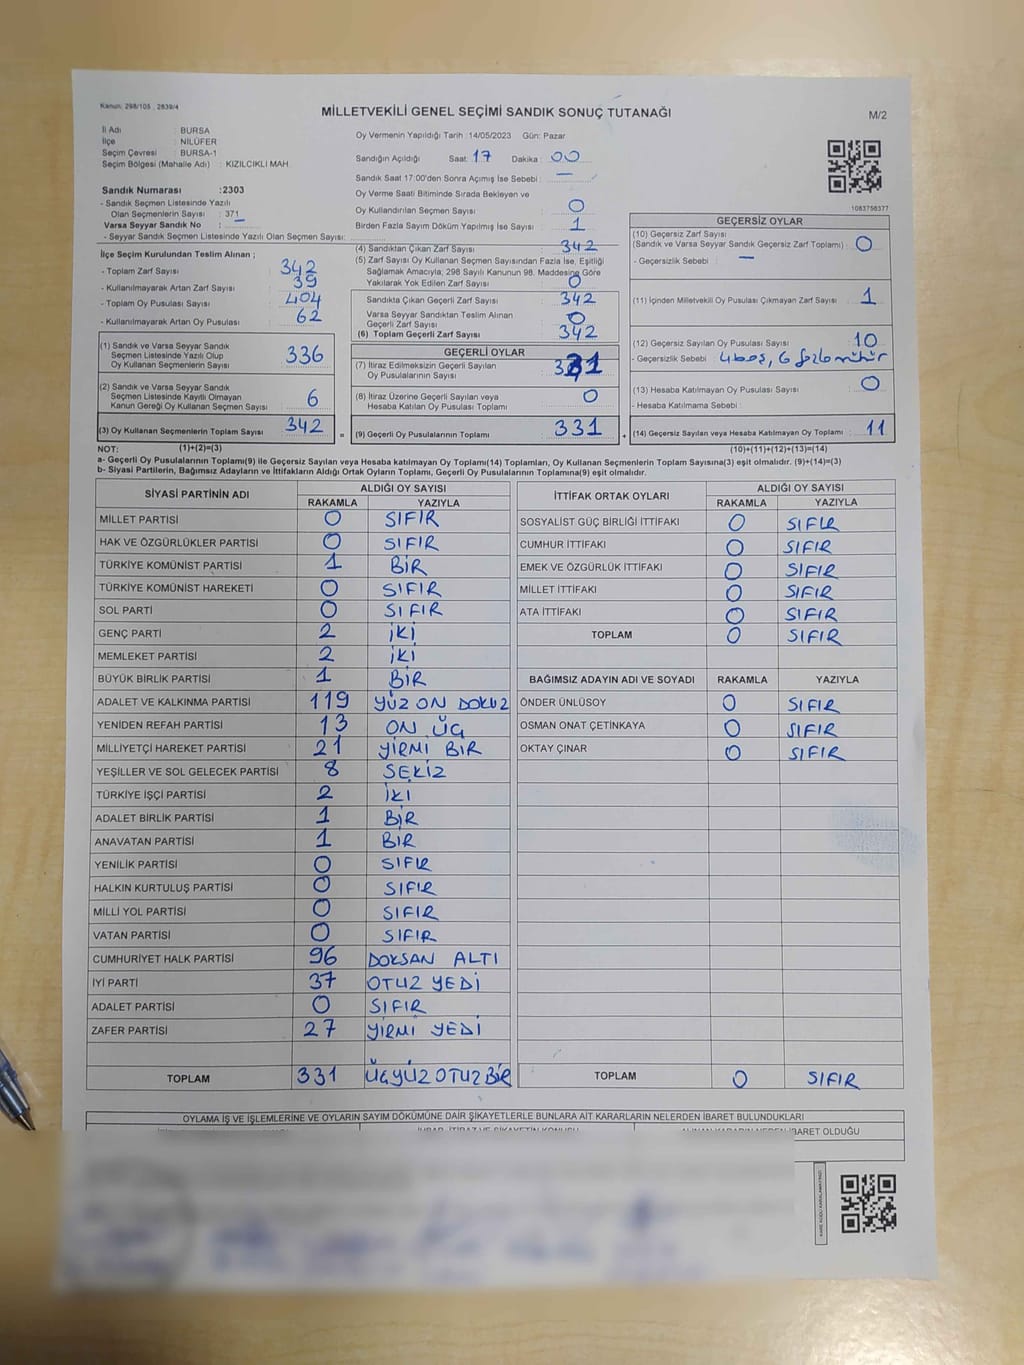 Kanun: 298/105 , 2839/4
MİLLETVEKİLİ GENEL SEÇİMİ SANDIK SONUÇ TUTANAĞI
M/2
İl Adı : BURSA
İlçe : NİLÜFER
Seçim Çevresi : BURSA-1
Seçim Bölgesi (Mahalle Adı) : KIZILCIKLI MAH.
Sandık Numarası :2303
- Sandık Seçmen Listesinde Yazılı
Olan Seçmenlerin Sayısı : 371
Varsa Seyyar Sandık No :
- Seyyar Sandık Seçmen Listesinde Yazılı Olan Seçmen Sayısı:
Oy Vermenin Yapıldığı Tarih :14/05/2023 Gün: Pazar
Sandığın Açıldığı Saat: 17 Dakika : 00
Sandık Saat 17:00'den Sonra Açılmış İse Sebebi : —
Oy Verme Saati Bitiminde Sırada Bekleyen ve
Oy Kullandırılan Seçmen Sayısı : 0
Birden Fazla Sayım Döküm Yapılmış İse Sayısı : 1
1083756377
İlçe Seçim Kurulundan Teslim Alınan ;
- Toplam Zarf Sayısı : 342
- Kullanılmayarak Artan Zarf Sayısı : 39
- Toplam Oy Pusulası Sayısı : 404
- Kullanılmayarak Artan Oy Pusulası : 62
(1) Sandık ve Varsa Seyyar Sandık
Seçmen Listesinde Yazılı Olup
Oy Kullanan Seçmenlerin Sayısı : 336
(2) Sandık ve Varsa Seyyar Sandık
Seçmen Listesinde Kayıtlı Olmayan
Kanun Gereği Oy Kullanan Seçmen Sayısı : 6
(3) Oy Kullanan Seçmenlerin Toplam Sayısı : 342 =
(4) Sandıktan Çıkan Zarf Sayısı : 342
(5) Zarf Sayısı Oy Kullanan Seçmen Sayısından Fazla İse, Eşitliği
Sağlamak Amacıyla; 298 Sayılı Kanunun 98. Maddesine Göre
Yakılarak Yok Edilen Zarf Sayısı : 0
Sandıkta Çıkan Geçerli Zarf Sayısı : 342
Varsa Seyyar Sandıktan Teslim Alınan
Geçerli Zarf Sayısı : 0
(6) Toplam Geçerli Zarf Sayısı : 342
GEÇERLİ OYLAR
(7) İtiraz Edilmeksizin Geçerli Sayılan
Oy Pusulalarının Sayısı : 331
(8) İtiraz Üzerine Geçerli Sayılan veya
Hesaba Katılan Oy Pusulası Toplamı : 0
(9) Geçerli Oy Pusulalarının Toplamı : 331 +
GEÇERSİZ OYLAR
(10) Geçersiz Zarf Sayısı
(Sandık ve Varsa Seyyar Sandık Geçersiz Zarf Toplamı) : 0
- Geçersizlik Sebebi : —
(11) İçinden Milletvekili Oy Pusulası Çıkmayan Zarf Sayısı : 1
(12) Geçersiz Sayılan Oy Pusulası Sayısı : 10
- Geçersizlik Sebebi : 4 boş, 6 fazla mühür
(13) Hesaba Katılmayan Oy Pusulası Sayısı : 0
- Hesaba Katılmama Sebebi :
(14) Geçersiz Sayılan veya Hesaba Katılmayan Oy Toplamı : 11
NOT: (1)+(2)=(3) (10)+(11)+(12)+(13)=(14)
a- Geçerli Oy Pusulalarının Toplamı(9) ile Geçersiz Sayılan veya Hesaba katılmayan Oy Toplamı(14) Toplamları, Oy Kullanan Seçmenlerin Toplam Sayısına(3) eşit olmalıdır. (9)+(14)=(3)
b- Siyasi Partilerin, Bağımsız Adayların ve İttifakların Aldığı Oyların Toplamı, Geçerli Oy Pusulalarının Toplamına(9) eşit olmalıdır.
SİYASİ PARTİNİN ADI ALDIĞI OY SAYISI
RAKAMLA YAZIYLA
MİLLET PARTİSİ 0 SIFIR
HAK VE ÖZGÜRLÜKLER PARTİSİ 0 SIFIR
TÜRKİYE KOMÜNİST PARTİSİ 1 BİR
TÜRKİYE KOMÜNİST HAREKETİ 0 SIFIR
SOL PARTİ 0 SIFIR
GENÇ PARTİ 2 İKİ
MEMLEKET PARTİSİ 2 İKİ
BÜYÜK BİRLİK PARTİSİ 1 BİR
ADALET VE KALKINMA PARTİSİ 119 YÜZ ON DOKUZ
YENİDEN REFAH PARTİSİ 13 ON ÜÇ
MİLLİYETÇİ HAREKET PARTİSİ 21 YİRMİ BİR
YEŞİLLER VE SOL GELECEK PARTİSİ 8 SEKİZ
TÜRKİYE İŞÇİ PARTİSİ 2 İKİ
ADALET BİRLİK PARTİSİ 1 BİR
ANAVATAN PARTİSİ 1 BİR
YENİLİK PARTİSİ 0 SIFIR
HALKIN KURTULUŞ PARTİSİ 0 SIFIR
MİLLİ YOL PARTİSİ 0 SIFIR
VATAN PARTİSİ 0 SIFIR
CUMHURİYET HALK PARTİSİ 96 DOKSAN ALTI
İYİ PARTİ 37 OTUZ YEDİ
ADALET PARTİSİ 0 SIFIR
ZAFER PARTİSİ 27 YİRMİ YEDİ
TOPLAM 331 ÜÇYÜZ OTUZ BİR
İTTİFAK ORTAK OYLARI ALDIĞI OY SAYISI
RAKAMLA YAZIYLA
SOSYALİST GÜÇ BİRLİĞİ İTTİFAKI 0 SIFIR
CUMHUR İTTİFAKI 0 SIFIR
EMEK VE ÖZGÜRLÜK İTTİFAKI 0 SIFIR
MİLLET İTTİFAKI 0 SIFIR
ATA İTTİFAKI 0 SIFIR
TOPLAM 0 SIFIR
BAĞIMSIZ ADAYIN ADI VE SOYADI RAKAMLA YAZIYLA
ÖNDER ÜNLÜSOY 0 SIFIR
OSMAN ONAT ÇETİNKAYA 0 SIFIR
OKTAY ÇINAR 0 SIFIR
TOPLAM 0 SIFIR
OYLAMA İŞ VE İŞLEMLERİNE VE OYLARIN SAYIM DÖKÜMÜNE DAİR ŞİKAYETLERLE BUNLARA AİT KARARLARIN NELERDEN İBARET BULUNDUKLARI
İBARET OLDUĞU